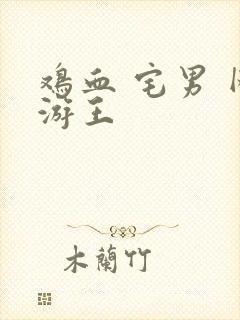 鸡血 宅男
游王
木蘭竹